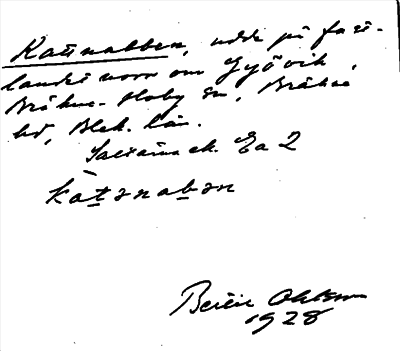 Katnabben, udde på fast-
landet norr om Gyövik,
Bräkne-Hoby sn, Bräkne
hd, Blek. län.
ek. Ea 2
kàtənabən
Ohlsson
1928